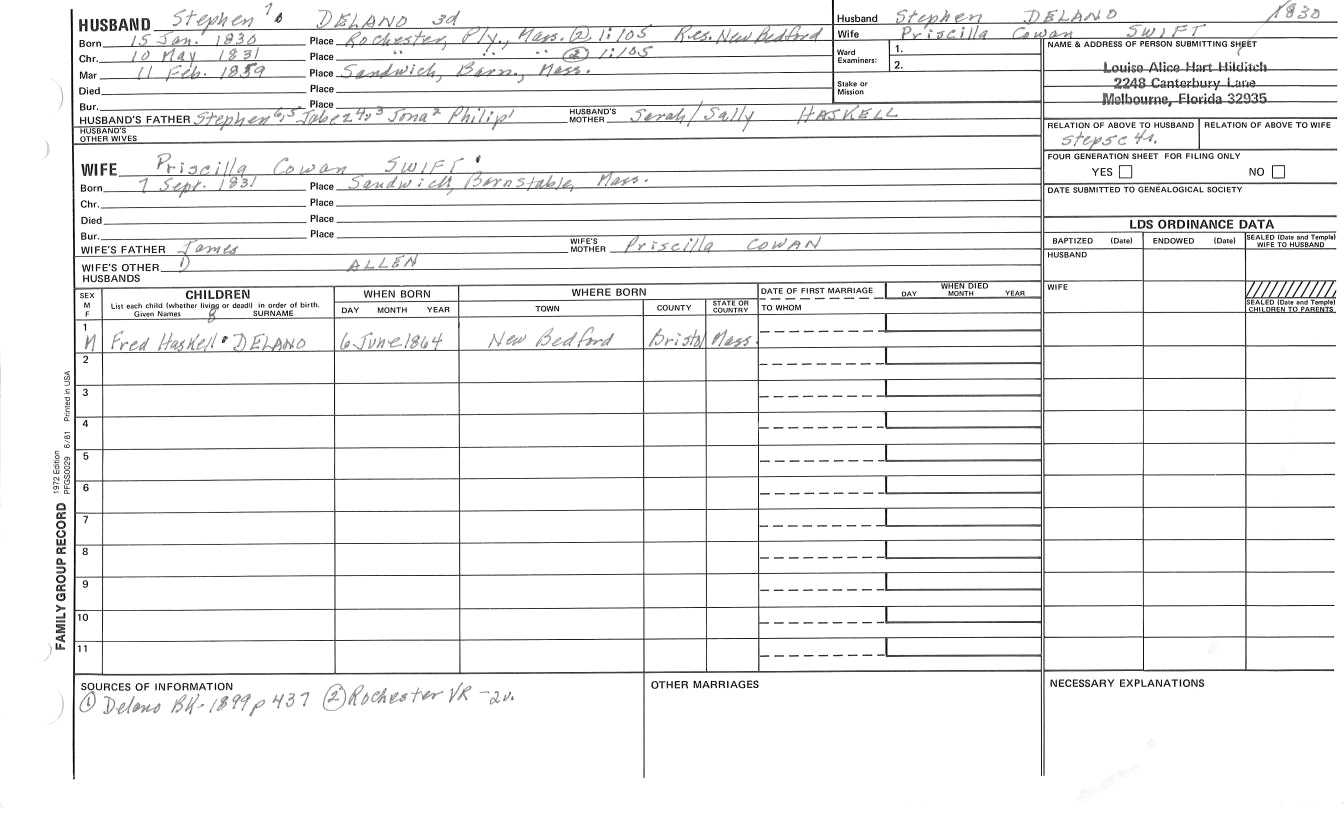 HUSBAND Stephen 7 DELANO 3d
Born 15 Jan. 1830 Place Rochester, Ply., Mass. (2) 1:105 Res. New Bedford
Chr. 10 May 1831 Place " " " (2) 1:105
Mar 11 Feb. 1859 Place Sandwich, Barn., Mass.
Died Place
Bur. Place
HUSBAND'S FATHER Stephen 6,5 Jabez 4 3 Jona 2 Philip 1 HUSBAND'S MOTHER Sarah/Sally HASKELL
HUSBAND'S OTHER WIVES
WIFE Priscilla Cowan SWIFT
Born 7 Sept. 1831 Place Sandwich, Barnstable, Mass.
Chr. Place
Died Place
Bur. Place
WIFE'S FATHER James WIFE'S MOTHER Priscilla COWAN
WIFE'S OTHER HUSBANDS 1) ALLEN
Husband Stephen DELANO 1830
Wife Priscilla Cowan SWIFT
Ward Examiners: 1.
2.
Stake or Mission
NAME & ADDRESS OF PERSON SUBMITTING SHEET
Louise Alice Hart Hilditch
2248 Canterbury Lane
Melbourne, Florida 32935
RELATION OF ABOVE TO HUSBAND RELATION OF ABOVE TO WIFE
FOUR GENERATION SHEET FOR FILING ONLY
YES NO
DATE SUBMITTED TO GENEALOGICAL SOCIETY
LDS ORDINANCE DATA
BAPTIZED (Date) ENDOWED (Date) SEALED (Date and Temple) WIFE TO HUSBAND
HUSBAND
WIFE
SEALED (Date and Temple) CHILDREN TO PARENTS
SEX M F CHILDREN WHEN BORN WHERE BORN DATE OF FIRST MARRIAGE WHEN DIED
List each child (whether living or dead) in order of birth.
Given Names 8 SURNAME DAY MONTH YEAR TOWN COUNTY STATE OR COUNTRY TO WHOM DAY MONTH YEAR
1 M Fred Haskell DELANO 6 June 1864 New Bedford Bristol Mass.
2
3
4
5
6
7
8
9
10
11
FAMILY GROUP RECORD 1972 Edition PFGS0029 6/81 Printed in USA
SOURCES OF INFORMATION
(1) Delano BK-1899 p 437 (2) Rochester VR -2v.
OTHER MARRIAGES
NECESSARY EXPLANATIONS